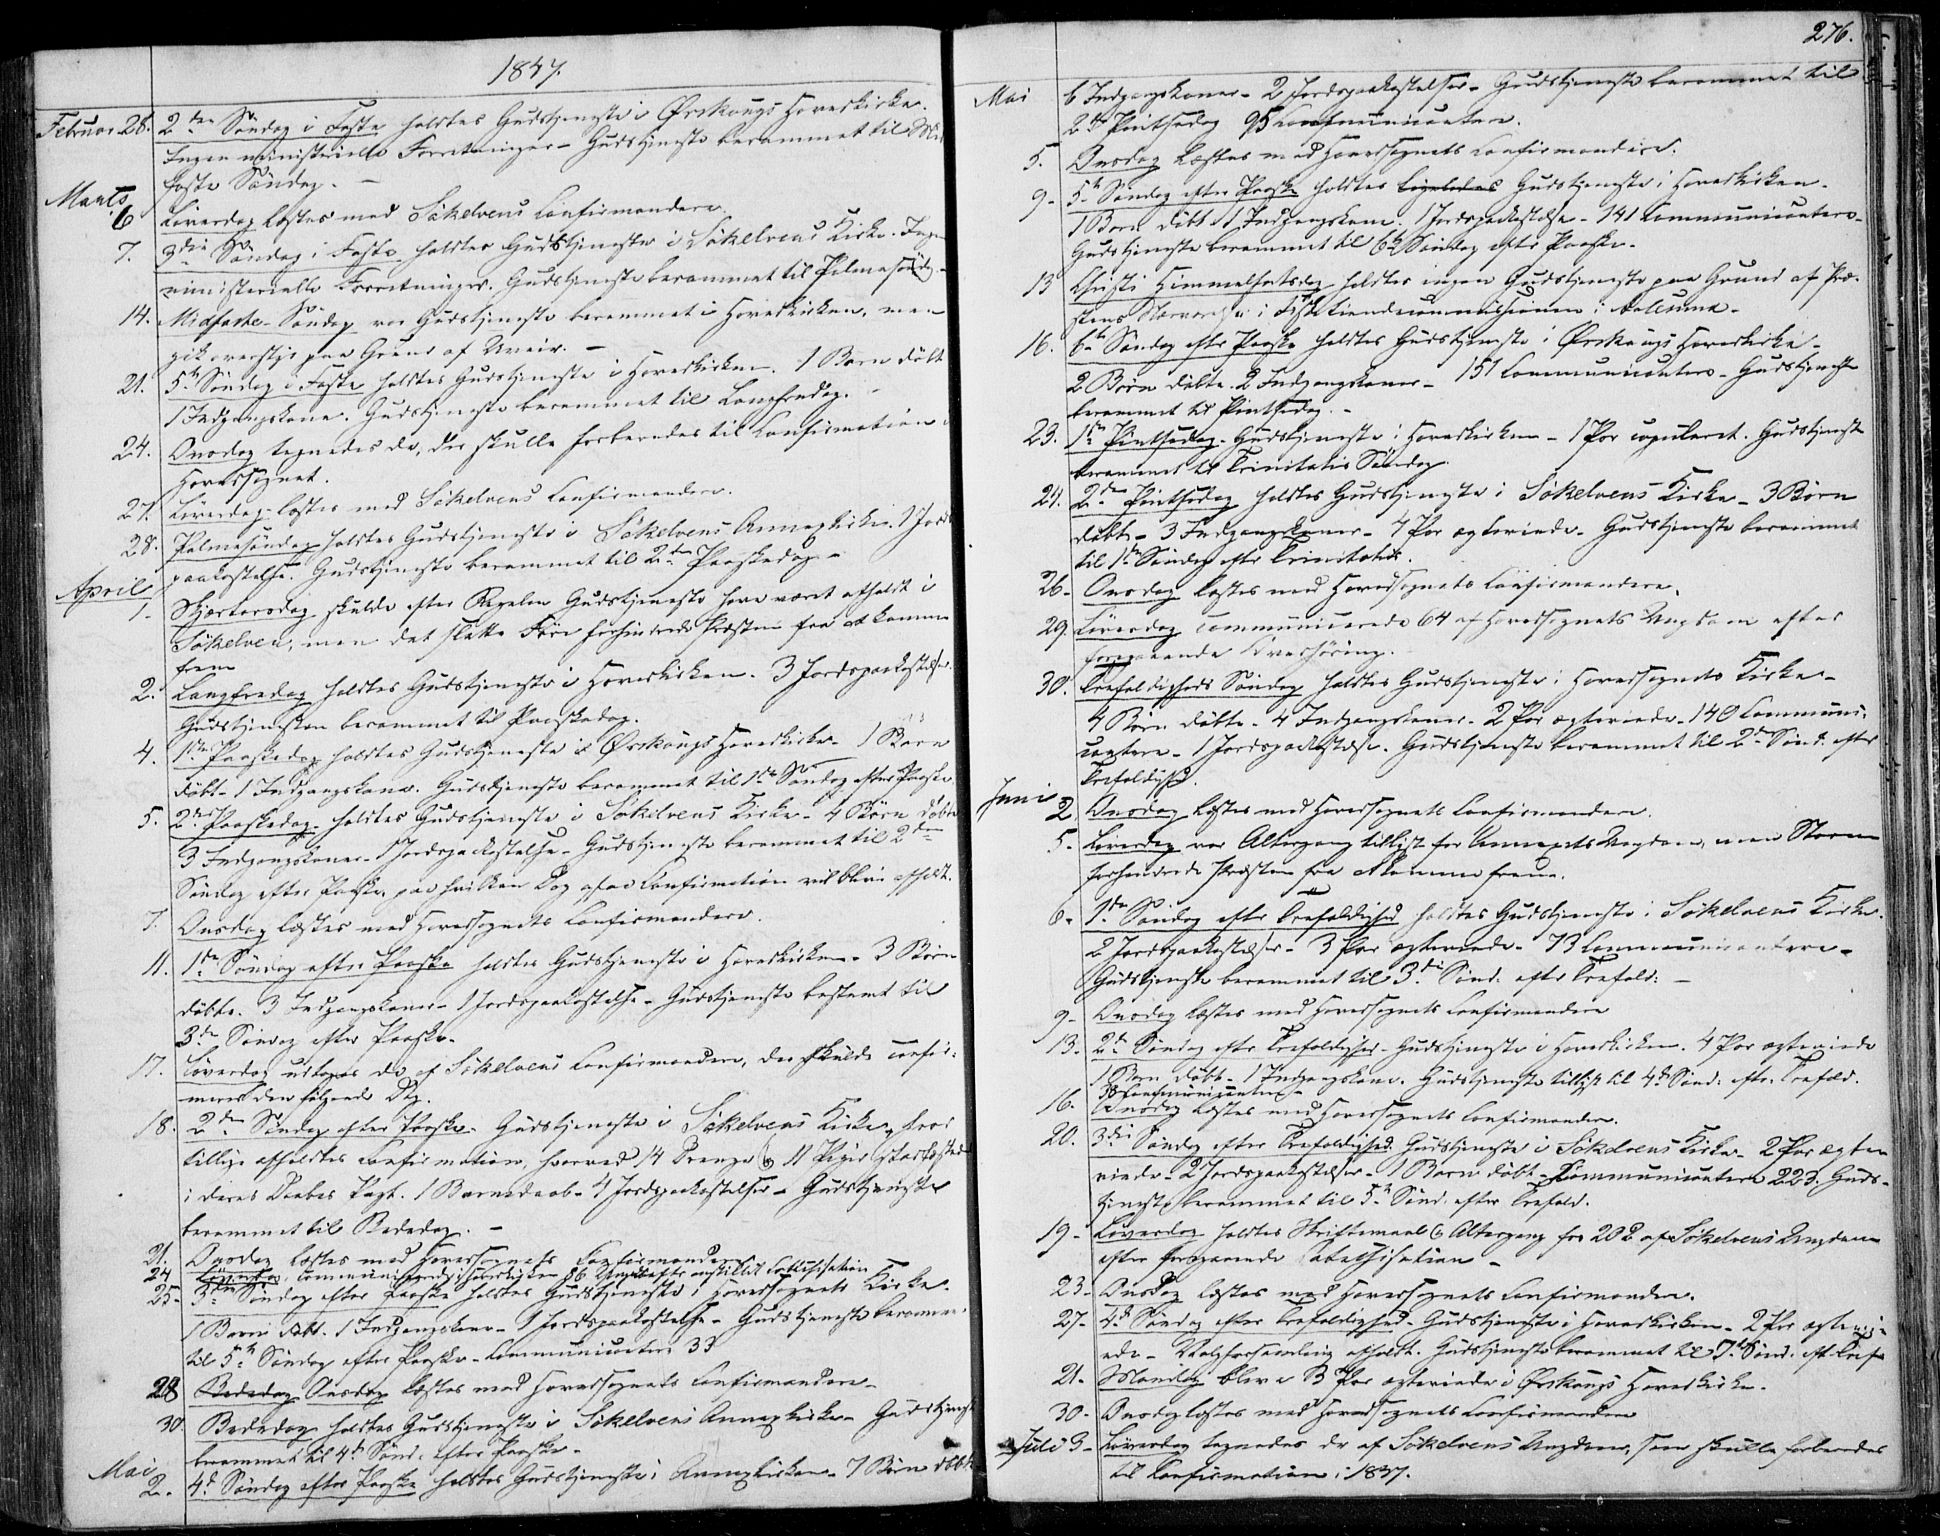 1847.
Februar 28. 2den Søndag i Faste holdtes Gudstjeneste i Ørskougs Hovedkirke.
Ingen ministerielle Forretninger - Gudstjeneste berammet til Mid
faste Søndag. -
Marts
6 Løverdag læstes med Søkelvens Confirmander.
7. 3die Søndag i Faste holdtes Gudstjeneste i Søkelvens Kirke. Ingen
ministerielle Forretninger. Gudstjeneste berammet til Palmesøndag.
14. Midfaste-Søndag var Gudstjeneste berammet i Hovedkirken, men
gik overstyr paa Grund af Uveir. -
21. 5te Søndag i Faste holdtes Gudstjeneste i Hovedkirken. 1 Barn døbt
1 Indgangskone. Gudstjeneste berammet til Langfredag.
24. Onsdag tegnedes de, der skulle forberedes til Confirmation i
Hovedsognet.
27. Løverdag læstes med Søkelvens Confirmander.
28. Palmesøndag holdtes Gudstjeneste i Søkelvens Annexkirke. 1 Jords
paakastelse. Gudstjeneste berammet til 2den Paaskedag -
April
1. Skjærtorsdag skulde efter Regelen Gudstjeneste have været afholdt i
Søkelven, men det slette Føre forhindrede Præsten fra at komme
frem
2. Langfredag holdtes Gudstjeneste i Hovedkirken. 3 Jordspaakastelser.
Gudstjenesten berammet til Paaskedag.
4. 1ste Paaskedag holdtes Gudstjeneste i Ørskougs Hovedkirke - 1 Barn
døbt - 1 Indgangskone. Gudstjeneste berammet til 1ste Søndag efter Paaske
5. 2den Paaskedag holdtes Gudstjeneste i Søkelvens Kirke - 4 Børn døbte
3 Indgangskoner - 1 Jordspaakastelse - Gudstjeneste berammet til 2den
Søndag efter Paaske, paa hvilken Dag ogsaa Confirmation vil blive afholdt.
7. Onsdag læstes med Hovedsognets Confirmander.
11. 1ste Søndag efter Paaske holdtes Gudstjeneste i Hovedkirken - 3 Børn
døbte. 3 Indgangskoner - 1 Jordspaakastelse - Gudstjeneste bestemt til
3die Søndag efter Paaske.
17. Løverdag udtoges de af Søkelvens Confirmander, der skulde confir-
meres den følgende Dag.
18. 2den Søndag efter Paaske. Gudstjeneste i Søkelvens Kirke, hvor
tillige afholdtes Confirmation, hvorved 14 Drenge og 11 Piger stadfæstedes
i deres Daabes Pagt. 1 Barnedaab - 4 Jordspaakastelser - Gudstjeneste
berammet til Bededag. -
21. Onsdag læstes med Hovedsognets Confirmander
24 Løverdag communicerede i Hovedkirken 86 Ungdom efter anstillet Catechisation
25. 3die Søndag efter Paaske holdtes Gudstjeneste i Hovedsognets Kirke.
1 Barn døbt. 1 Indgangskone - 1 Jordspaakastelse - Gudstjeneste berammet
til 5te Søndag efter Paaske - Communicanter 33
28 Bededag Onsdag læstes med Hovedsognets Confirmander -
30. Bededag holdtes Gudstjeneste i Søkelvens Annexkirke - Gudstjeneste
berammet til 4de Sønd. efter Paaske -
Mai
2. 4de Søndag efter Paaske holdtes Gudstjeneste i Annexkirken - 7 Børn døbte
276.
Mai 6 Indgangskoner - 2 Jordspaakastelser - Gudstjeneste berammet til
2den Pintsedag 95 Communicanter.
5. Onsdag læstes med Hovedsognets Confirmander.
9 - 5te Søndag efter Paaske holdtes Gudstjeneste i Hovedkirken.
1 Barn døbt 1 Indgangskone. 1 Jordspaakastelse - 141 Communicantere -
Gudstjeneste berammet til 6te Søndag efter Paaske.
13 Christi Himmelfartsdag holdtes ingen Gudstjeneste paa Grund af Præ-
stens Nærværelse i Fisketiendecommissionen i Aalesund -
16. 6te Søndag efter Paaske holdtes Gudstjeneste i Ørskougs Hovedkirke -
2 Børn døbte. 2 Indgangskoner - 151 Communicantere - Gudstjeneste
berammet til Pintsedag. -
23. 1ste Pintsedag. Gudstjeneste i Hovedkirken - 1 Par copuleret. Gudstjeneste
berammet til Trinitatis Søndag.
24. 2den Pintsedag holdtes Gudstjeneste i Søkelvens Kirke - 3 Børn
døbte - 3 Indgangskoner - 4 Par ægteviede - Gudstjeneste berammet
til 1ste Søndag efter Trinitatis.
26 - Onsdag læstes med Hovedsognets Confirmander.
29 Løverdag communicerede 64 af Hovedsognets Ungdom efter
foregaaende Overhøring.
30. Trefoldigheds Søndag holdtes Gudstjeneste i Hovedsognets Kirke -
4 Børn døbte. 4 Indgangskoner - 2 Par ægteviede - 140 Communi-
cantere - 1 Jordspaakastelse. Gudstjeneste berammet til 2den Sønd. efter
Trefoldighed.
Juni
2. Onsdag læstes med Hovedsognets Confirmander.
5 - Løverdag var Altergang tillyst for Annexets Ungdom, men Storm
forhindrede Præsten fra at komme frem.
6 - 1ste Søndag efter Trefoldighed holdtes Gudstjeneste i Søkelvens Kirke.
2 Jordspaakastelser - 3 Par ægteviede - 73 Communicantere -
Gudstjeneste berammet til 3die Sønd. efter Trefold: -
9 - Onsdag læstes med Hovedsognets Confirmander
13. 2den Søndag efter Trefoldighed - Gudstjeneste i Hovedkirken. 4 Par ægteviede
1 Barn døbt - 1 Indgangskone. Gudstjeneste tillyst til 4de Sønd: efter Trefold.
38 Communicantere -
16. Onsdag læstes med Hovedsognets Confirmander.
20. 3die Søndag efter Trefoldighed. Gudstjeneste i Søkelvens Kirke - 2 Par ægte-
viede - 2 Jordspaakastelser - 1 Barn døbt - Communicantere 223. Guds-
tjeneste berammet til 5te Sønd. efter Trefold.
19 - Løverdag holdtes Skriftemaal og Altergang for 202 af Søkelvens Ungdom
efter foregaaende Catechisation -
23 - Onsdag læstes med Hovedsognets Confirmander.
27 - 4de Søndag efter Trefoldighed - Gudstjeneste i Hovedkirken - 2 Par ægtevi-
ede - Valgforsamling afholdt. Gudstjeneste berammet til 7de Sønd. eft. Tref
21 - Mandag bleve 3 Par ægteviede i Ørskougs Hovedkirke.
30 - Onsdag læstes med Hovedsognets Confirmander
Juli 3 - Løverdag tegnedes de af Søkelvens Ungdom, som skulle forberedes
til Confirmation i 1847.